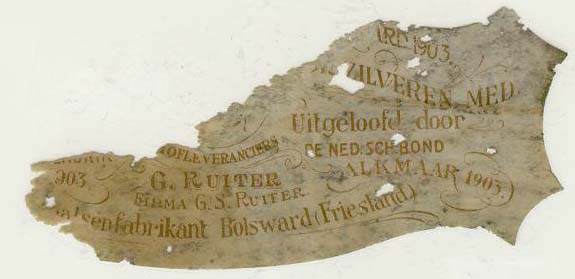 1903.
ZILVEREN MED
Uitgeloofd door
DE NED. SCH. BOND
ALKMAAR 1903.
OFLEVERANCIERS
903.
G. RUITER
FIRMA G. S. RUITER
atsenfabrikant Bolsward (Friesland)